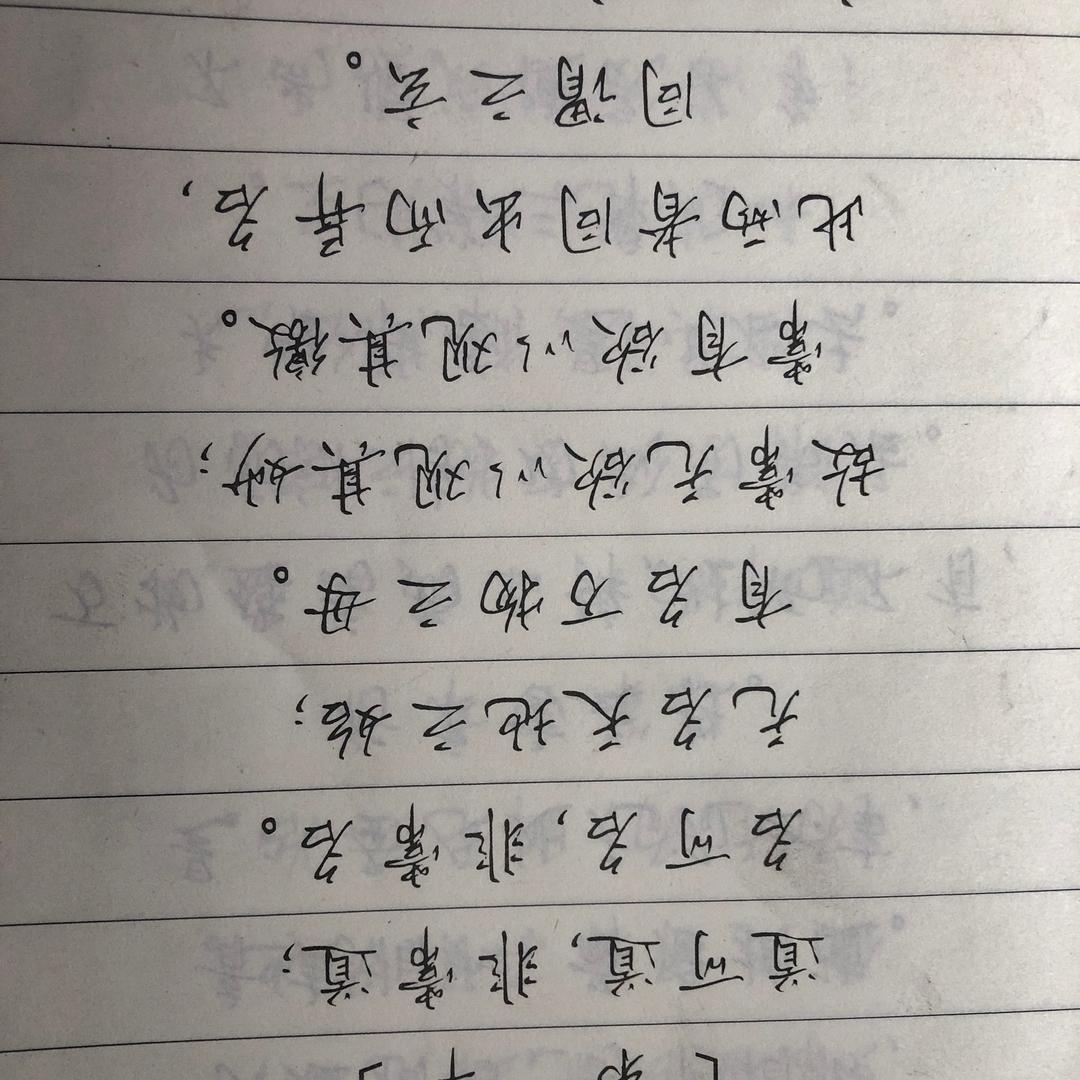 道可道,非常道;
名可名,非常名。
无名天地之始;
有名万物之母。
故常无欲以观其妙;
常有欲以观其徼。
此两者同出而异名,
同谓之玄。